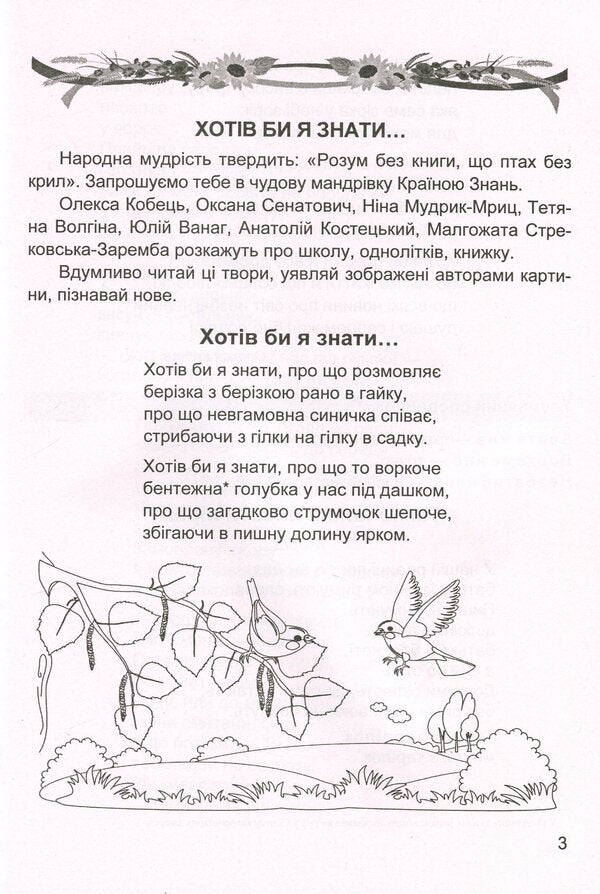 ХОТІВ БИ Я ЗНАТИ...
Народна мудрість твердить: «Розум без книги, що птах без
крил». Запрошуємо тебе в чудову мандрівку Країною Знань.
Олекса Кобець, Оксана Сенатович, Ніна Мудрик-Мриц, Тетя-
на Волгіна, Юлій Ванаг, Анатолій Костецький, Малгожата Стре-
ковська-Заремба розкажуть про школу, однолітків, книжку.
Вдумливо читай ці твори, уявляй зображені авторами карти-
ни, пізнавай нове.
Хотів би я знати...
Хотів би я знати, про що розмовляє
берізка з берізкою рано в гайку,
про що невгамовна синичка співає,
стрибаючи з гілки на гілку в садку.
Хотів би я знати, про що то воркоче
бентежна* голубка у нас під дашком,
про що загадково струмочок шепоче,
збігаючи в пишну долину ярком.
3